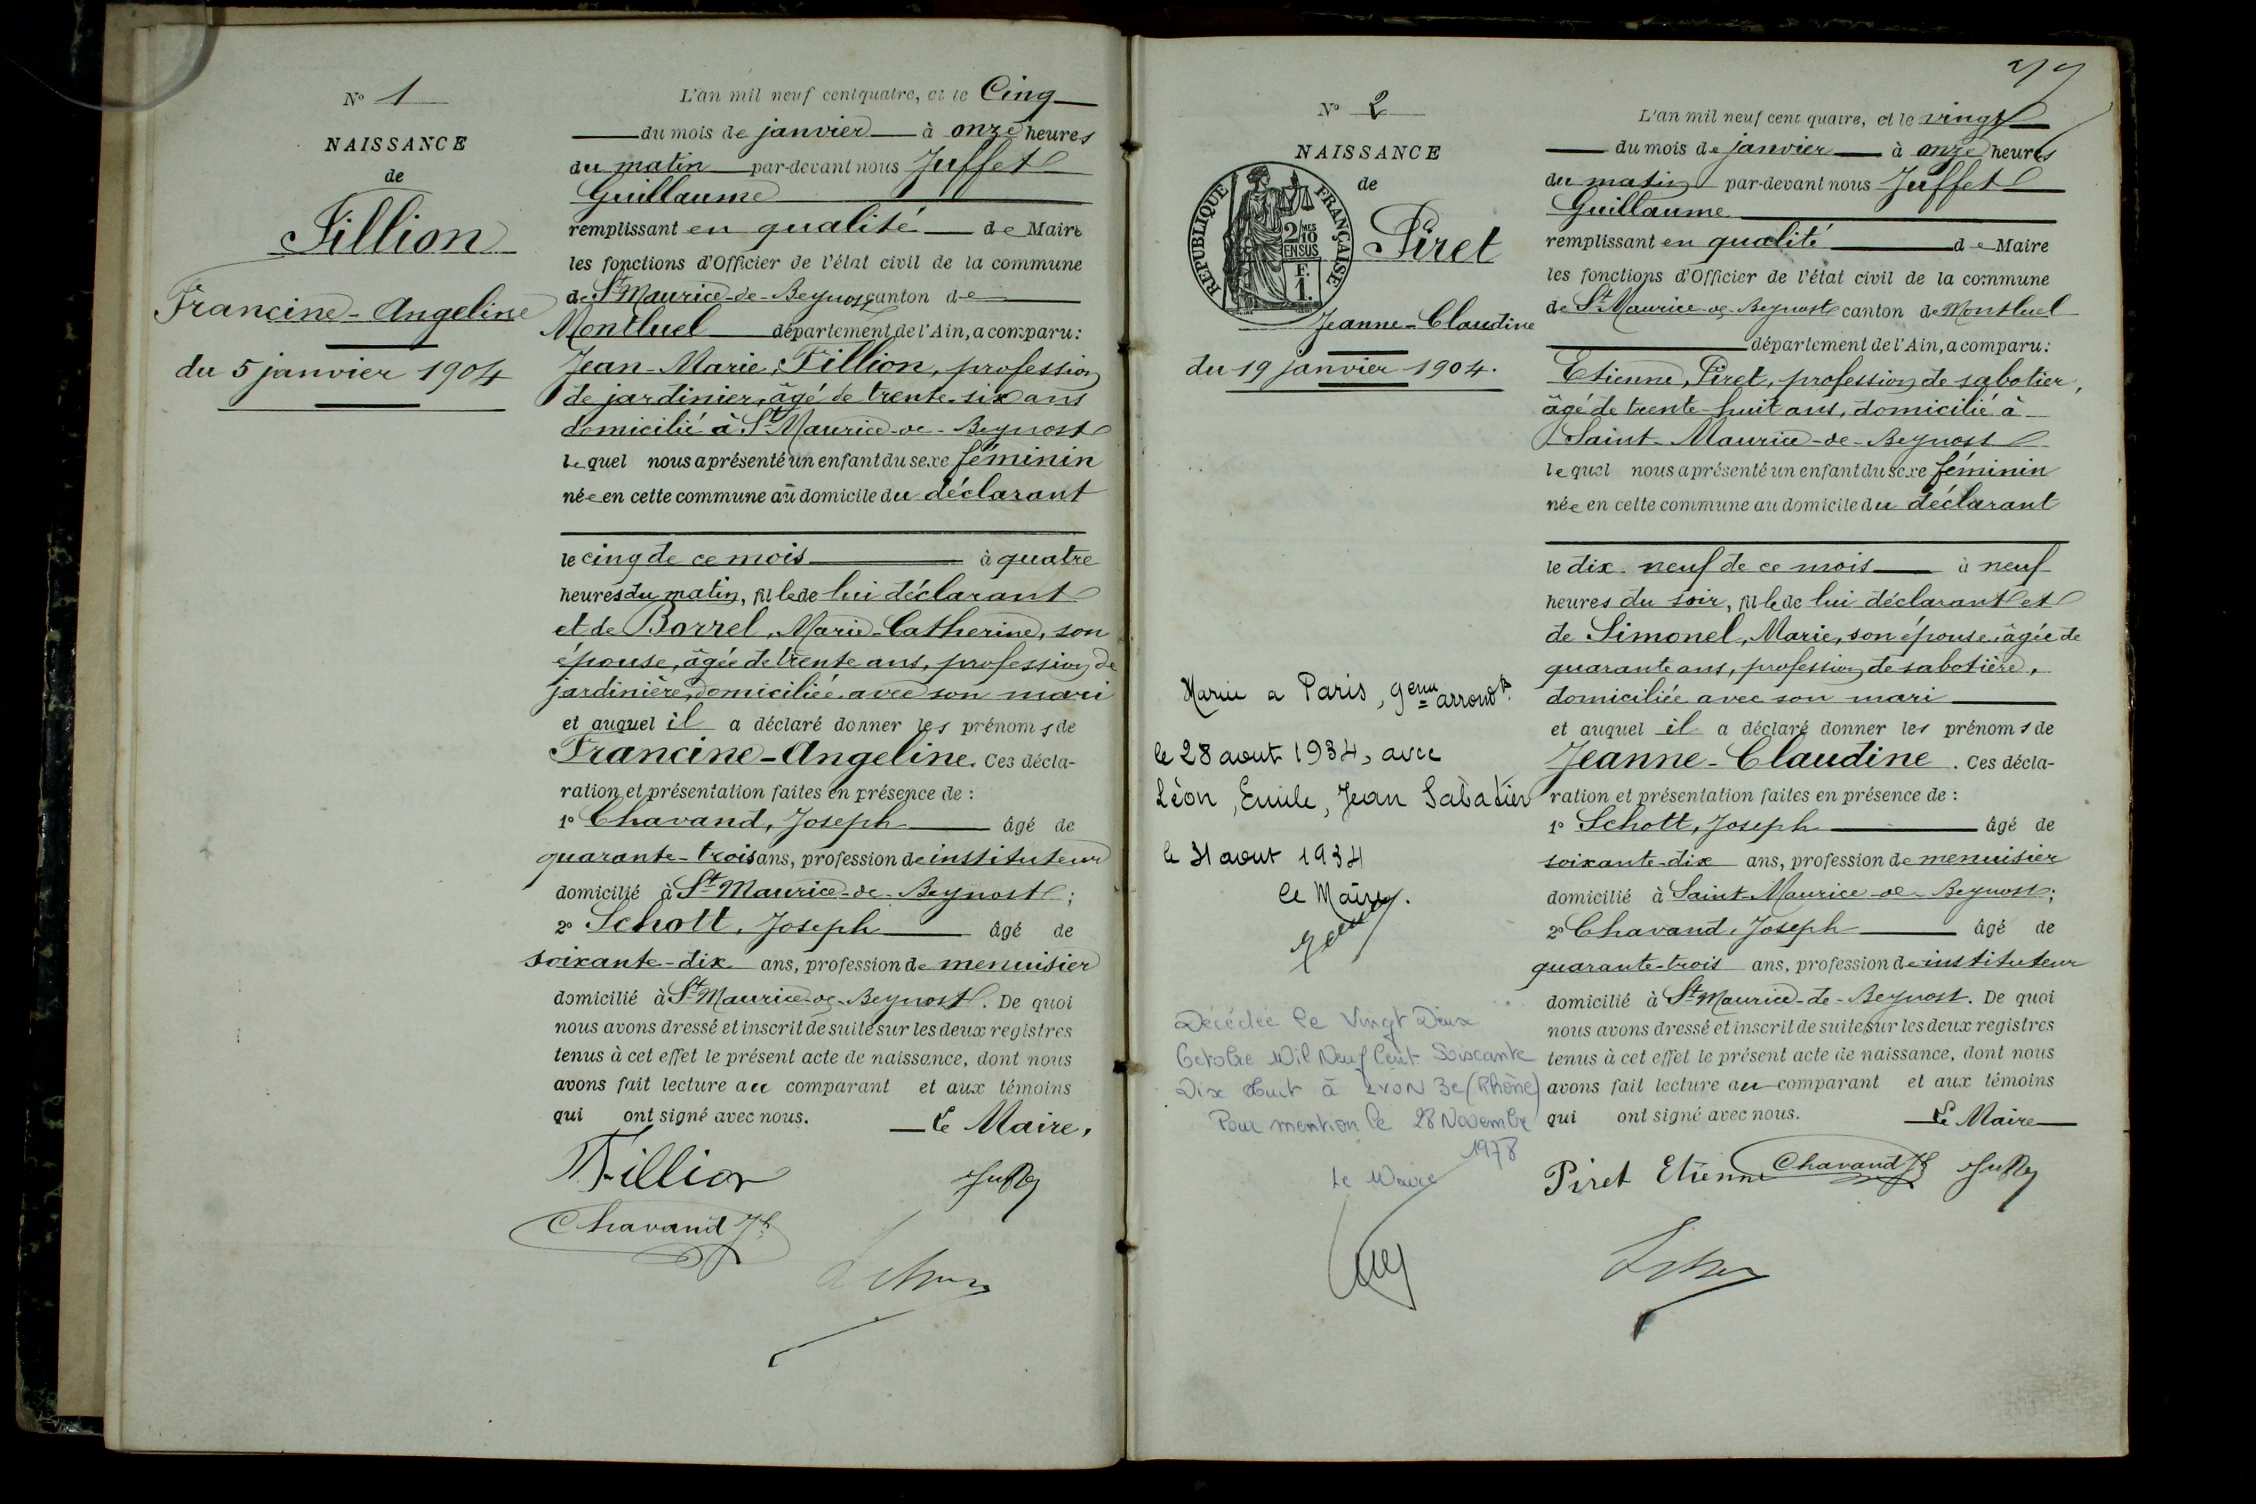 Nº 1
NAISSANCE
de
Fillion
Francine-Angeline
du 5 janvier 1904
L'an mil neuf cent quatre, et le Cinq
du mois de janvier à onze heures
du matin par-devant nous Juffet
Guillaume
remplissant en qualité de Maire
les fonctions d'Officier de l'état civil de la commune
de St Maurice-de-Beynost canton de
Montluel département de l'Ain, a comparu:
Jean-Marie, Fillion, profession
de jardinier, âgé de trente-six ans
domicilié à St Maurice-de-Beynost
lequel nous a présenté un enfant du sexe féminin
née en cette commune au domicile du déclarant
le cinq de ce mois à quatre
heures du matin, fille de lui déclarant
et de Borrel, Marie-Catherine, son
épouse, âgée de trente ans, profession de
jardinière, domiciliée avec son mari
et auquel il a déclaré donner les prénoms de
Francine-Angeline. Ces décla-
ration et présentation faites en présence de :
1º Chavand, Joseph âgé de
quarante-trois ans, profession de instituteur
domicilié à St Maurice-de-Beynost ;
2º Schott, Joseph âgé de
soixante-dix ans, profession de menuisier
domicilié à St Maurice-de-Beynost. De quoi
nous avons dressé et inscrit de suite sur les deux registres
tenus à cet effet le présent acte de naissance, dont nous
avons fait lecture au comparant et aux témoins
qui ont signé avec nous. Le Maire,
Fillion
Chavand Jh
Nº 2
NAISSANCE
de
REPUBLIQUE FRANÇAISE
2/10 EN SUS
F. 1.
Piret
Jeanne-Claudine
du 19 janvier 1904.
Mariée a Paris, 9eme arrondt.
le 28 aout 1934, avec
Léon, Emile, Jean Sabatier
le 31 aout 1934
Le Maire.
Décédée le Vingt Deux
Octobre Mil Neuf Cent Soixante
Dix Huit à LYON 3e (Rhône)
Pour mention le 28 Novembre
1978
Le Maire
L'an mil neuf cent quatre, et le vingt
du mois de janvier à onze heures
du matin par-devant nous Juffet
Guillaume
remplissant en qualité de Maire
les fonctions d'Officier de l'état civil de la commune
de St Maurice-de-Beynost canton de Montluel
département de l'Ain, a comparu:
Etienne, Piret, profession de sabotier,
âgé de trente-huit ans, domicilié à
Saint-Maurice-de-Beynost
lequel nous a présenté un enfant du sexe féminin
née en cette commune au domicile du déclarant
le dix-neuf de ce mois à neuf
heures du soir, fille de lui déclarant et
de Simonel, Marie, son épouse, âgée de
quarante ans, profession de sabotière,
domiciliée avec son mari
et auquel il a déclaré donner les prénoms de
Jeanne-Claudine. Ces décla-
ration et présentation faites en présence de :
1º Schott, Joseph âgé de
soixante-dix ans, profession de menuisier
domicilié à Saint-Maurice-de-Beynost;
2º Chavand, Joseph âgé de
quarante-trois ans, profession de instituteur
domicilié à St Maurice-de-Beynost. De quoi
nous avons dressé et inscrit de suite sur les deux registres
tenus à cet effet le présent acte de naissance, dont nous
avons fait lecture au comparant et aux témoins
qui ont signé avec nous. Le Maire
Piret Etienne Chavand Jh